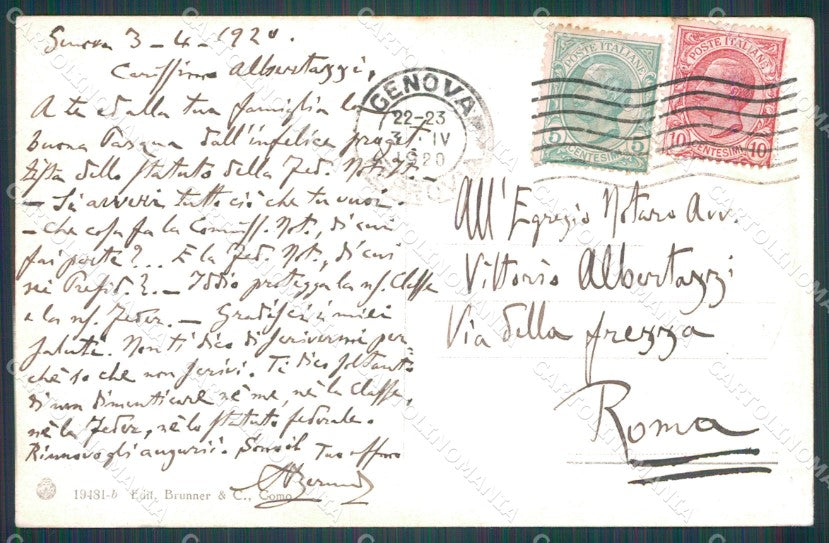 Genova 3-4-1920.
Carissimo Albertazzi,
A te ed alla tua famiglia la
Buona Pasqua dall'infelice proget-
tista dello Statuto della Fed. Not. It.
- Si avveri tutto ciò che tu vuoi.
- Che cosa fa la Commiss. Not., di cui
fai parte?... E la Fed. Not., di cui
sei Presid.? - Iddio protegga la ns. Classe
e la ns. Feder. - Gradisci i miei
saluti. Non ti dico di scrivermi per
chè so che non scrivi. Ti dico soltanto
di non dimenticare nè me, nè la Classe,
nè la Feder, nè lo Statuto federale.
Rinnovo gli auguri. Tuo affmo
19481-b Edit. Brunner & C., Como
GENOVA
22-23
3 IV
1920
POSTE ITALIANE
5 5
CENTESIMI
POSTE ITALIANE
10 10
CENTESIMI
All'Egregio Notaro Avv.
Vittorio Albertazzi
Via della frezza
Roma
CARTOLINOMANIA